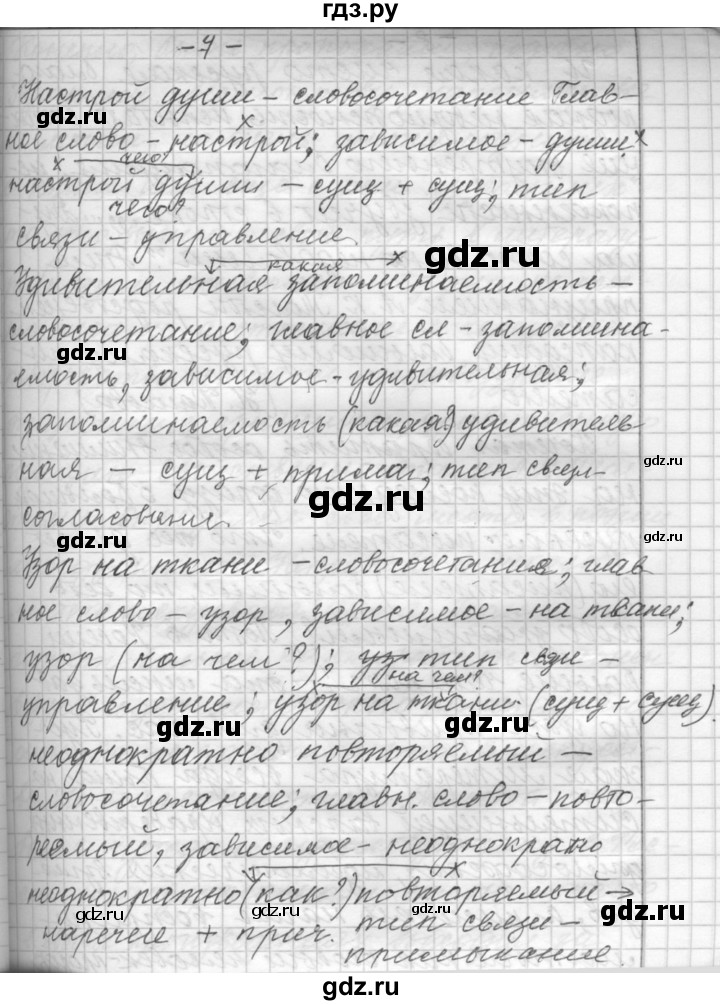 гдз.ру
- 7 -
Настрой души - словосочетание Глав-
gdz.ru
ное слово - настрой; зависимое - души.
х чего? х х
настрой души - сущ + сущ; тип
чего?
связи - управление.
gdz.ru
какая х
Удивительная запоминаемость -
словосочетание; главное сл - запомина-
gdz.ru gdz.ru
емость, зависимое - удивительная;
запоминаемость (какая?) удивитель
ная - сущ + прилаг; тип связи-
gdz.ru
gdz.ru
согласование.
gdz.ru
Узор на ткани - словосочетания; глав
ное слово - узор, зависимое - на ткани;
gdz.ru
узор (на чем?); уз тип связи -
на чем?
управление; узор на ткани (сущ + сущ).
gdz.ru
неоднократно повторяемый -
словосочетание; главн. слово - повто-
gdz.ru
ряемый, зависимое - неоднократно
gdz.ru
х
неоднократно (как?) повторяемый →
gdz.ru gdz.ru
наречие + прич. тип связи -
примыкание.
gdz.ru gdz.ru